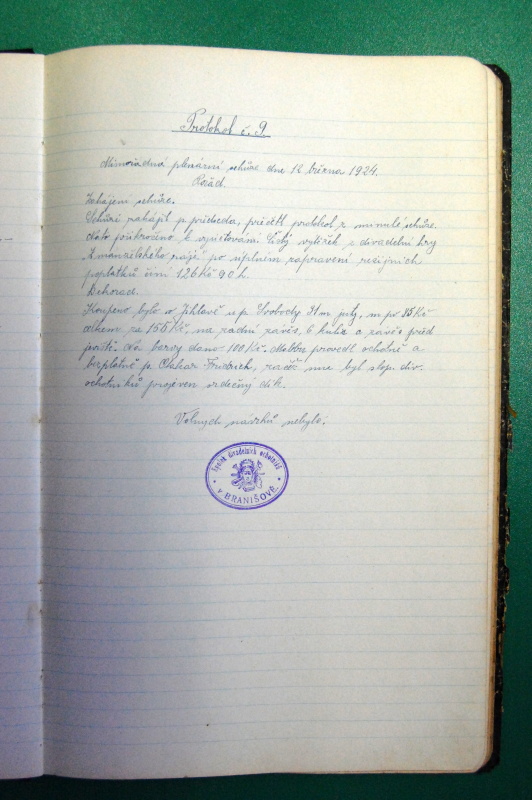 Protokol č. 9.
Mimořádná plenární schůze dne 12 března 1924.
Pořád.
Zahájení schůze.
Schůzi zahájil p. předseda, přečetl protokol z minulé schůze.
Na to vyúčtování. Čistý výtěžek z divadelní hry
"Z manželského ráje" po úplném zapravení režijních
poplatků činí 126 Kč 90 h.
Dekorací.
Koupeno bylo v Jihlavě u p. Svobody 31 m juty, m po 5 Kč
celkem za 155 Kč, na zadní závěs, 6 kulis a závěs před
Na barvy dáno 100 Kč. Malbu provedl ochotně a
bezplatně p. Oskar Fridrich, začež mu byl spol. div.
ochotníků projeven srdečný dík.
Volných návrhů nebylo.
Spolek divadelních ochotníků
v BRANIŠOVĚ.